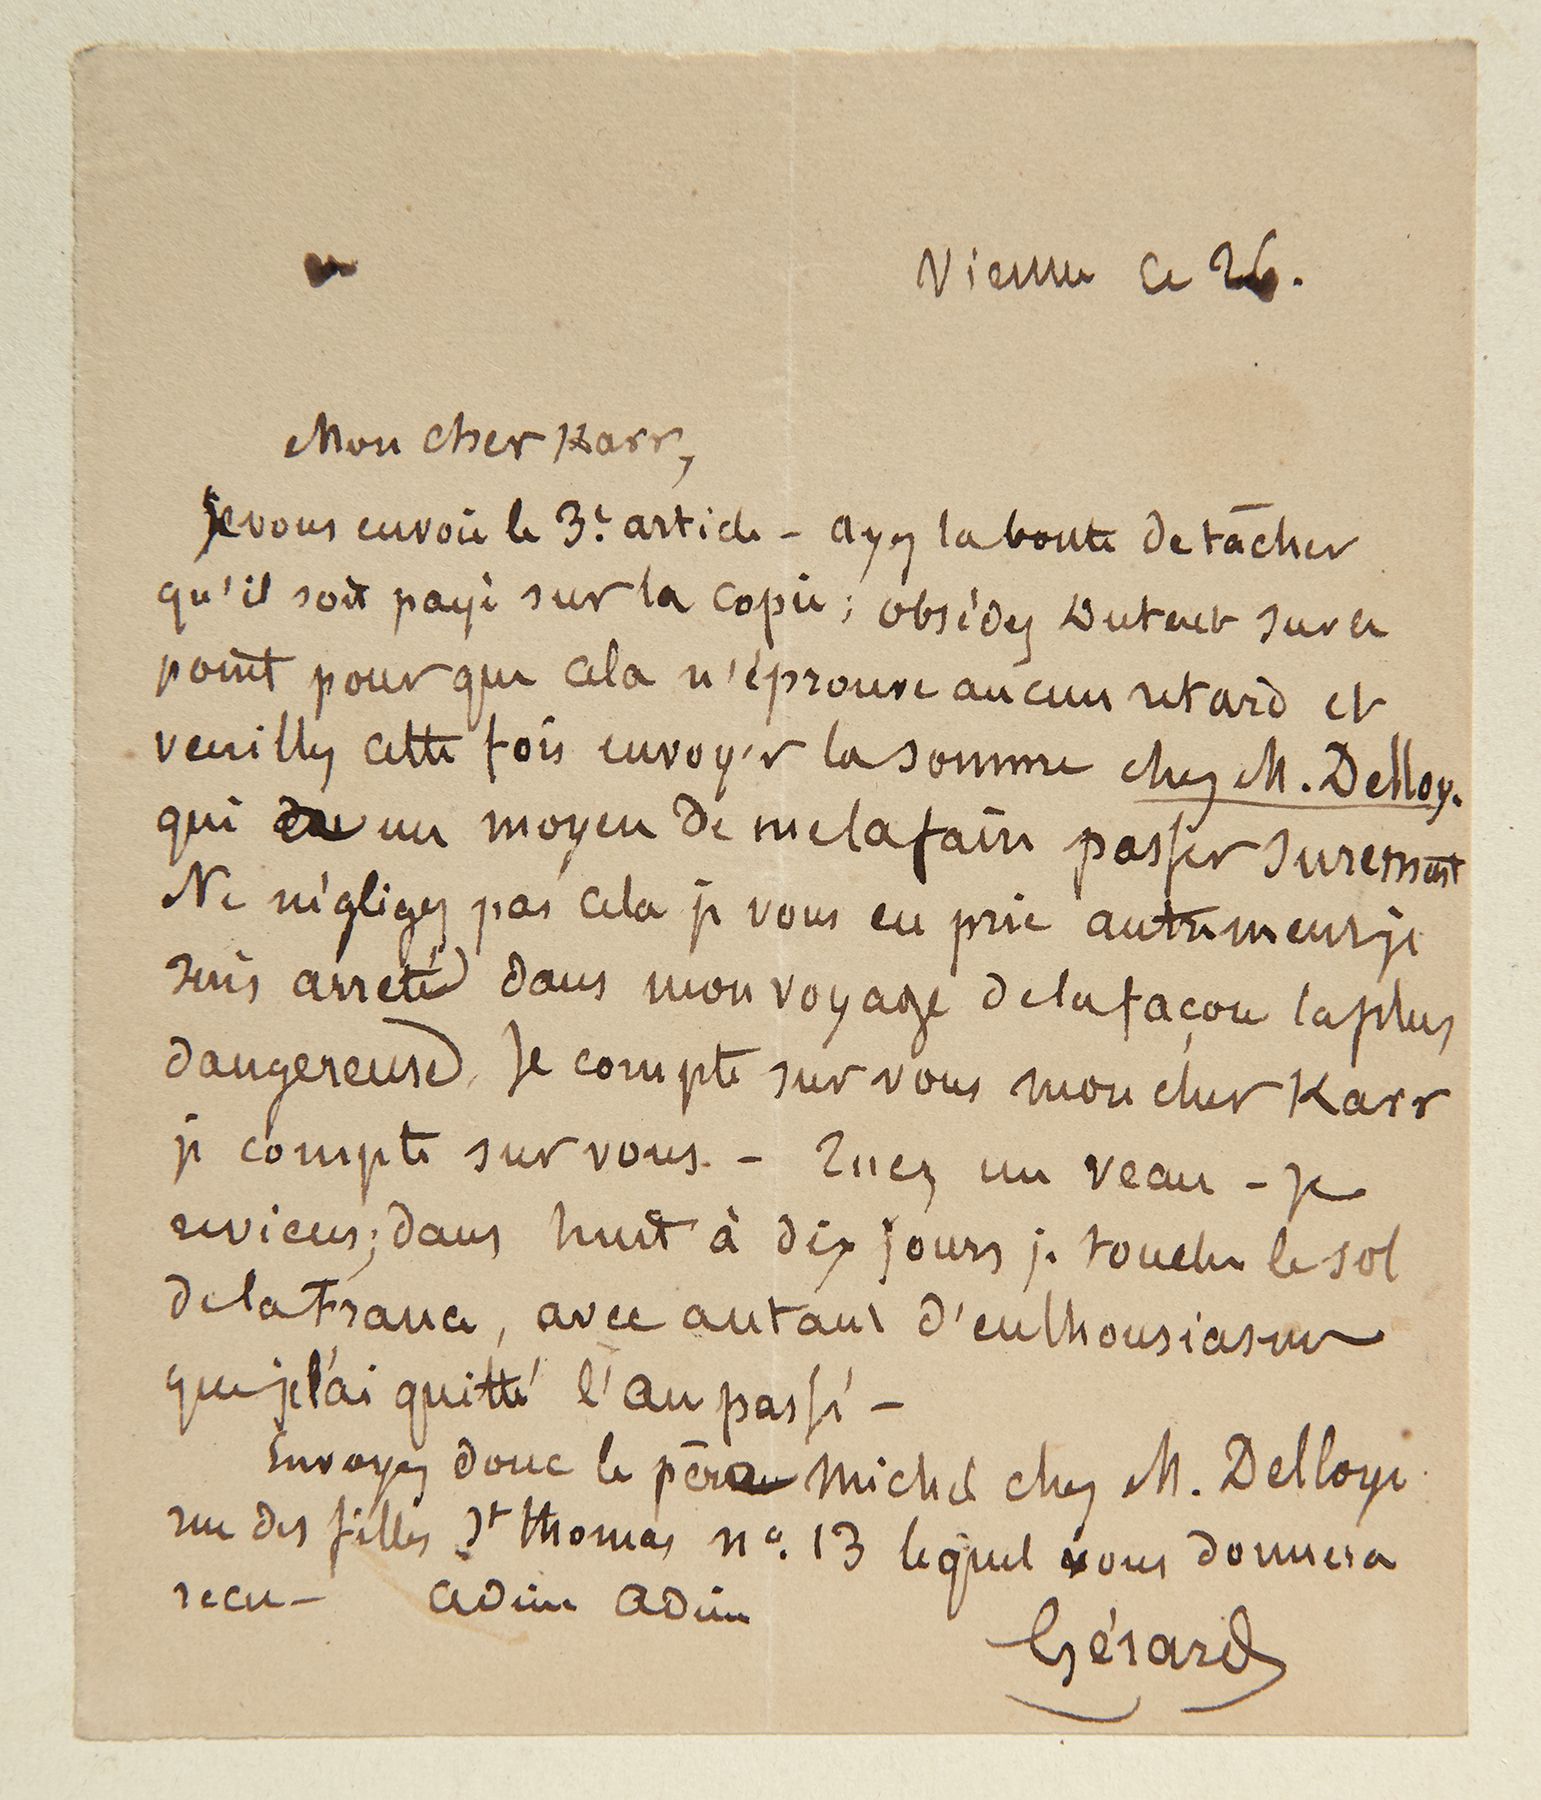 Vienne ce 26.
Mon cher Karr,
je vous envoie le 3e article – ayez la bonté de tâcher
qu'il soit payé sur la copie ; obsédez Dutacq sur ce
point pour que cela n'éprouve aucun retard et
veuillez cette fois envoyer la somme chez M. Delloy.
qui a un moyen de me la faire passer surement
Ne négligez pas cela je vous en prie autrement je
suis arreté dans mon voyage de la façon la plus
dangereuse. Je compte sur vous mon cher Karr
je compte sur vous. – Tuez un veau – Je
reviens ; dans huit à dix jours je touche le sol
de la France, avec autant d'enthousiasme
que je l'ai quitté l'an passé –
Envoyez donc le père Michel chez M. Delloye
rue des filles St thomas no. 13 lequel vous donnera
recu – adieu adieu
Gérard